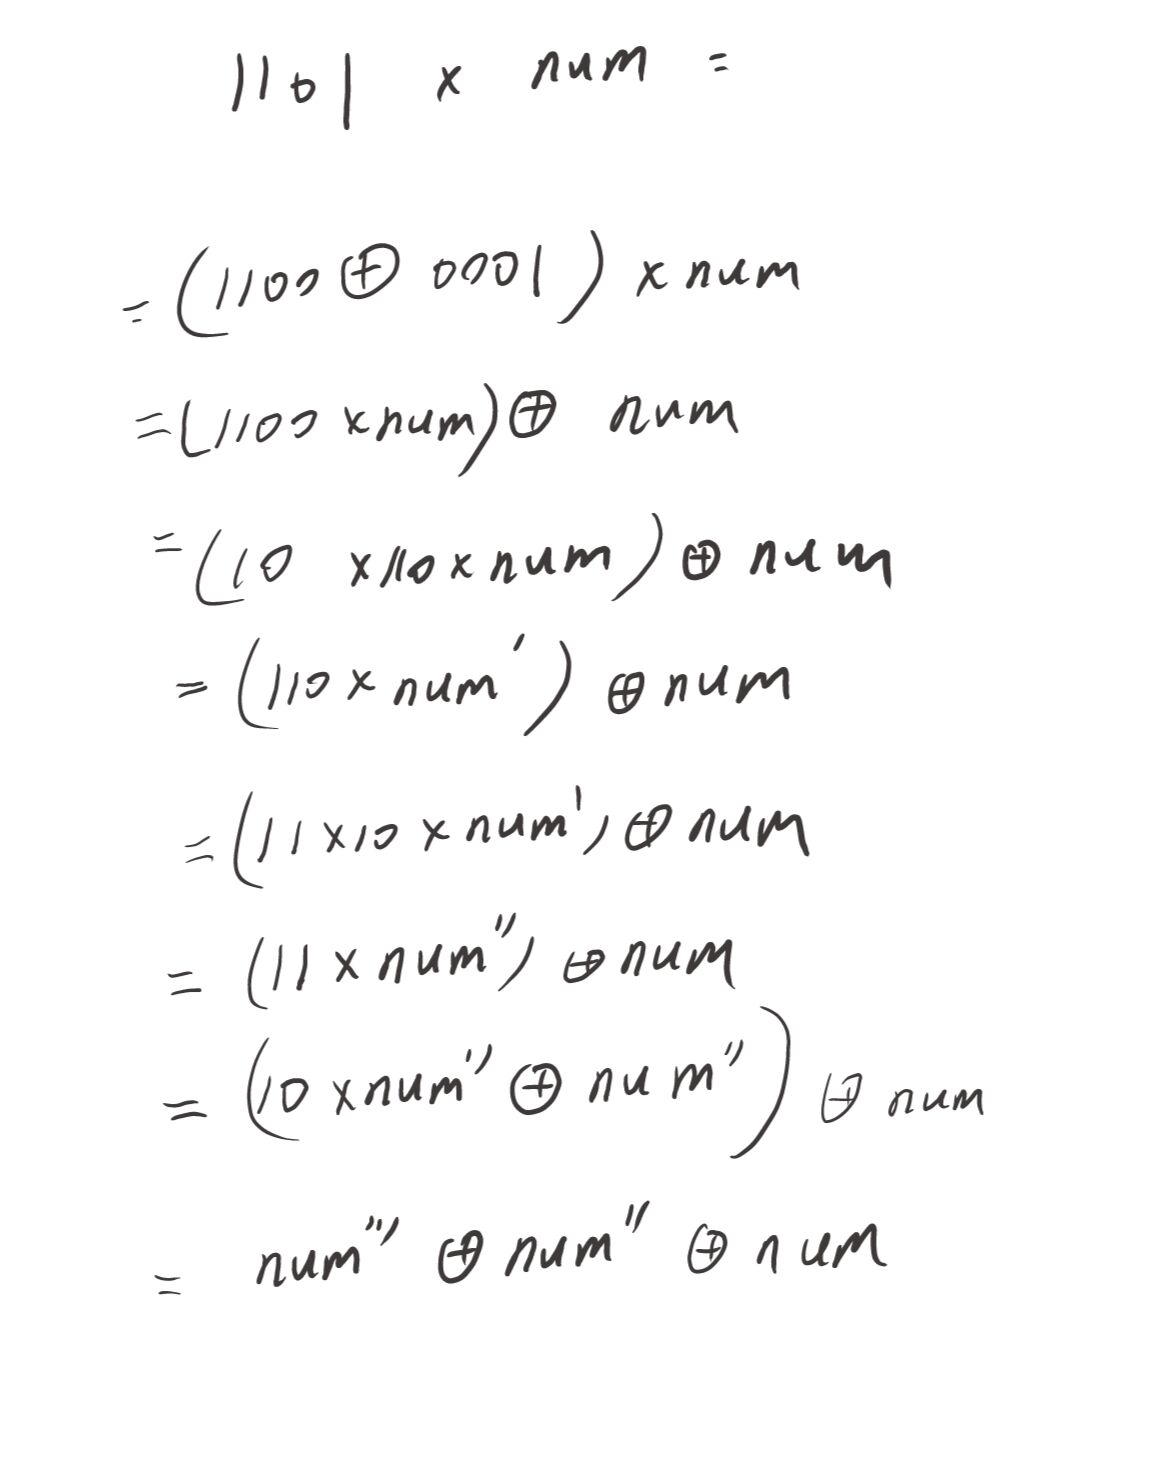 1101 × num =
= (1100 ⊕ 0001) × num
= (1100 × num) ⊕ num
= (10 × 110 × num) ⊕ num
= (110 × num') ⊕ num
= (11 × 10 × num') ⊕ num
= (11 × num'') ⊕ num
= (10 × num'' ⊕ num'') ⊕ num
= num''' ⊕ num'' ⊕ num